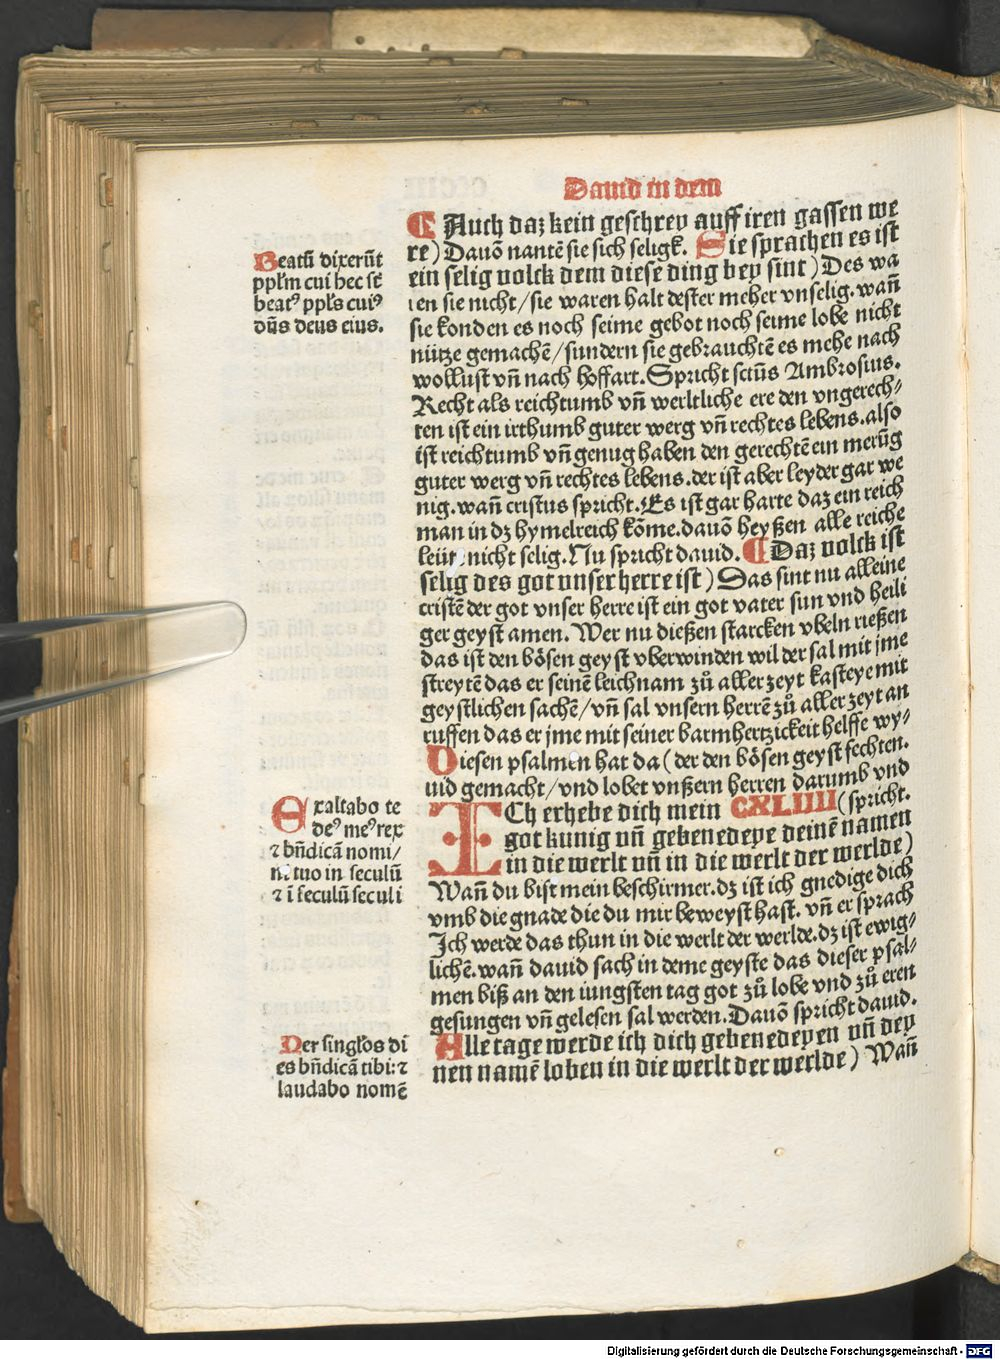 Dauid in dem
Auch daz kein geschrey auff iren gassen we
re) Dauō nantē sie sich seligk. Sie sprachen es ist
ein selig volck dem diese ding bey sint) Des wa
ren sie nicht/sie waren halt dester meher vnselig. wañ
sie konden es noch seime gebot noch seime lobe nicht
nütze gemachē/sundern sie gebrauchtē es mehe nach
wollust vñ nach hoffart. Spricht sctūs Ambrosius.
Recht als reichtumb vñ werltliche ere den vngerech⸗
ten ist ein irthumb guter werg vñ rechtes lebens. also
ist reichtumb vñ genug haben den gerechtē ein merūg
guter werg vñ rechtes lebens. der ist aber leyder gar we
nig. wañ cristus spricht. Es ist gar harte daz ein reich
man in dz hymelreich kōme. dauō heyßen alle reiche
leüt nicht selig. Nu spricht dauid. Daz volck ist
selig des got vnser herre ist) Das sint nu alleine
cristē der got vnser herre ist ein got vater sun vnd heili
ger geyst amen. Wer nu dießen starcken vbeln rießen
das ist den bösen geyst vberwinden wil der sal mit jme
streytē das er seinē leichnam zů aller zeyt kasteye mit
geystlichen sachē/vñ sal vnsern herrē zů aller zeyt an
ruffen das er jme mit seiner barmhertzickeit helffe wy⸗
Diesen psalmen hat da (der den bösen geyst fechten.
uid gemacht/vnd lobet vnßern herren darumb vnd
ICh erhebe dich mein CXLIIII (spricht.
got kunig vñ gebenedeye deinē namen
in die werlt vñ in die werlt der werlde)
Wañ du bist mein beschirmer. dz ist ich gnedige dich
vmb die gnade die du mir beweyst hast. vñ er sprach
Ich werde das thun in die werlt der werlde. dz ist ewig⸗
lichē. wañ dauid sach in deme geyste das dieser psal⸗
men biß an den iungsten tag got zů lobe vnd zů eren
gesungen vñ gelesen sal werden. Dauō spricht dauid.
Alle tage werde ich dich gebenedeyen vñ dey
nen namē loben in die werlt der werlde) Wañ
Beatū dixerūt
pplm cui hec sūt
beatꝰ ppls cuiꝰ
dūs deus eius.
Exaltabo te
deꝰ meꝰ rex
⁊ bñdicā nomi/
ni tuo in seculū
⁊ ī seculū seculi
Per singłos di
es bñdicā tibi: ⁊
laudabo nomē
Digitalisierung gefördert durch die Deutsche Forschungsgemeinschaft - DFG